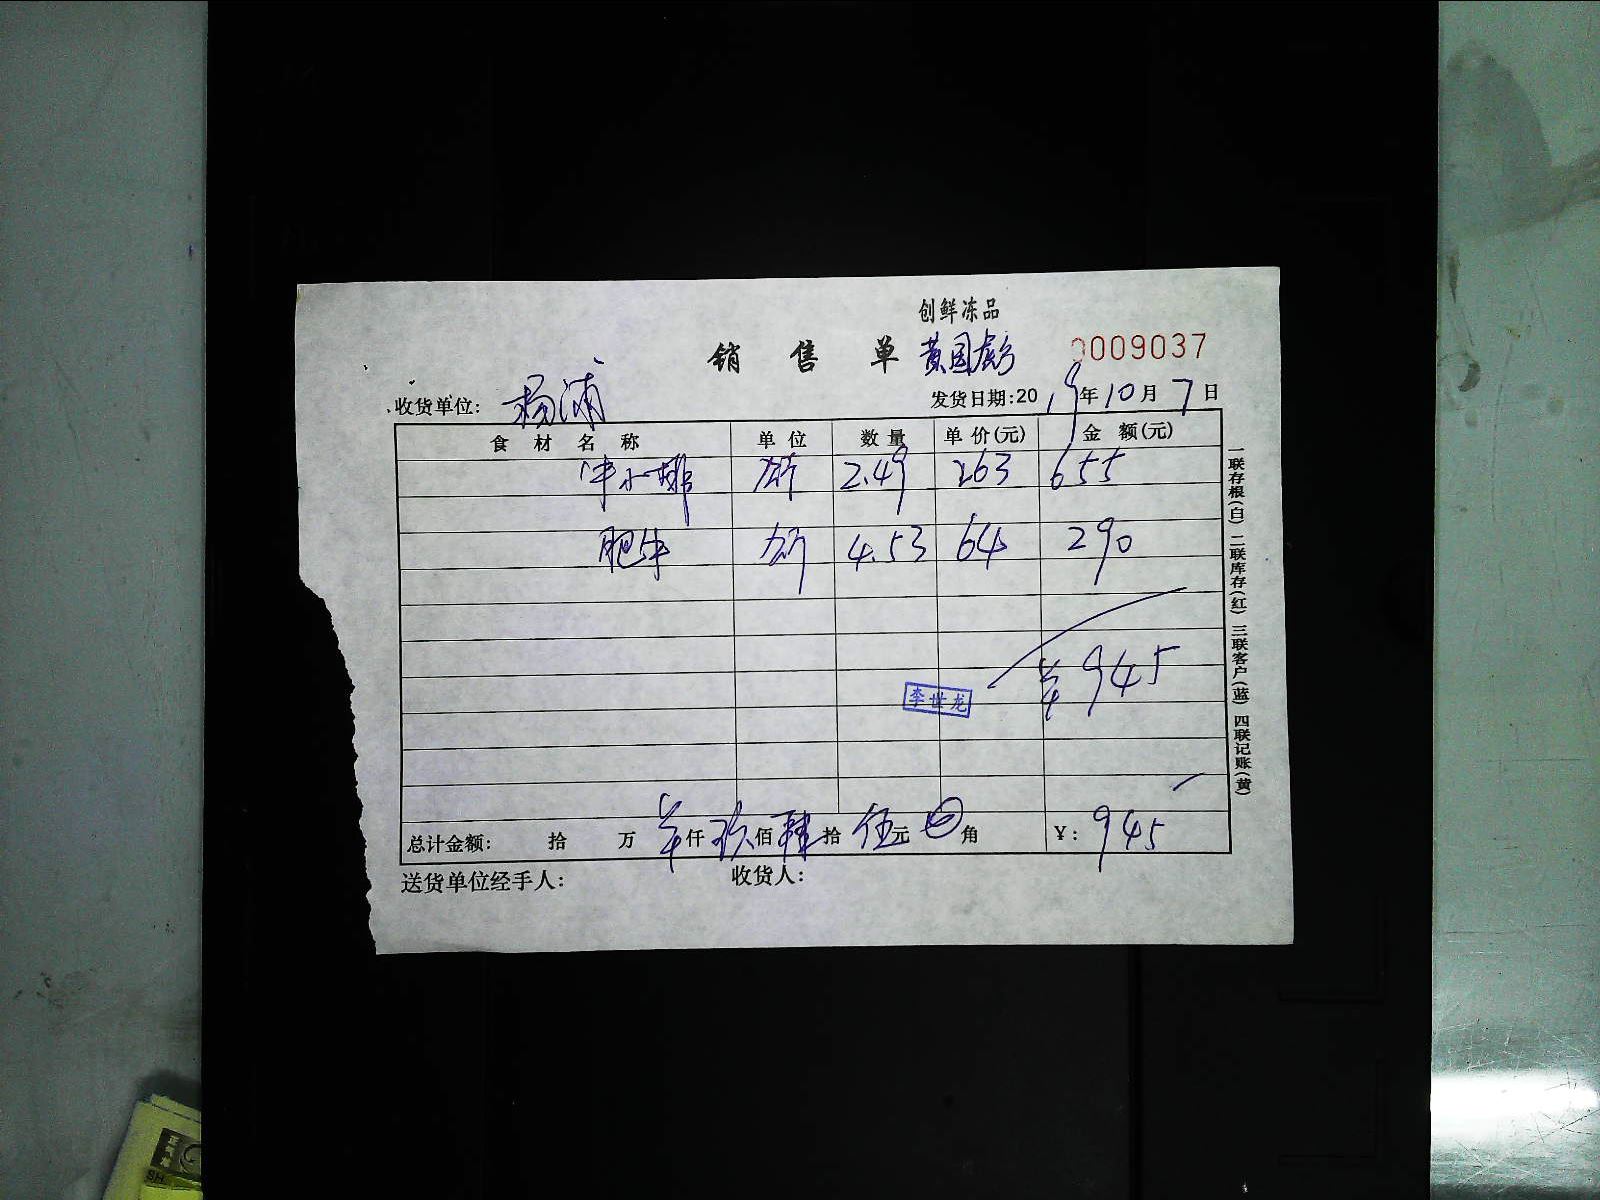 创鲜冻品
销售单 黄国彪 0009037
收货单位: 杨浦 发货日期:2019年10月7日
食材名称 单位 数量 单价(元) 金额(元)
牛小排 斤 2.49 263 655
肥牛 斤 4.53 64 290
¥945
李世龙
总计金额: 拾 万 ¥仟玖佰肆拾伍元 角 ¥: 945
送货单位经手人: 收货人:
一联存根(白) 二联库存(红) 三联客户(蓝) 四联记账(黄)